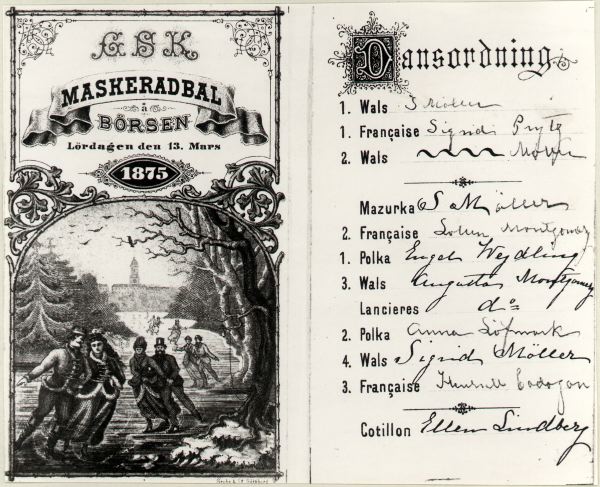 G S K
MASKERADBAL
å
BÖRSEN
Lördagen den 13. Mars
1875
Dansordning
1. Wals S Möller
1. Française Sigrid
2. Wals
Mazurka S Möller
2. Française Montgomery
1. Polka Engel Weydling
3. Wals Augusta Montgomery
Lancieres do
2. Polka Anna Löfmark
4. Wals Sigrid Möller
3. Française
Cotillon Ellen Lindberg